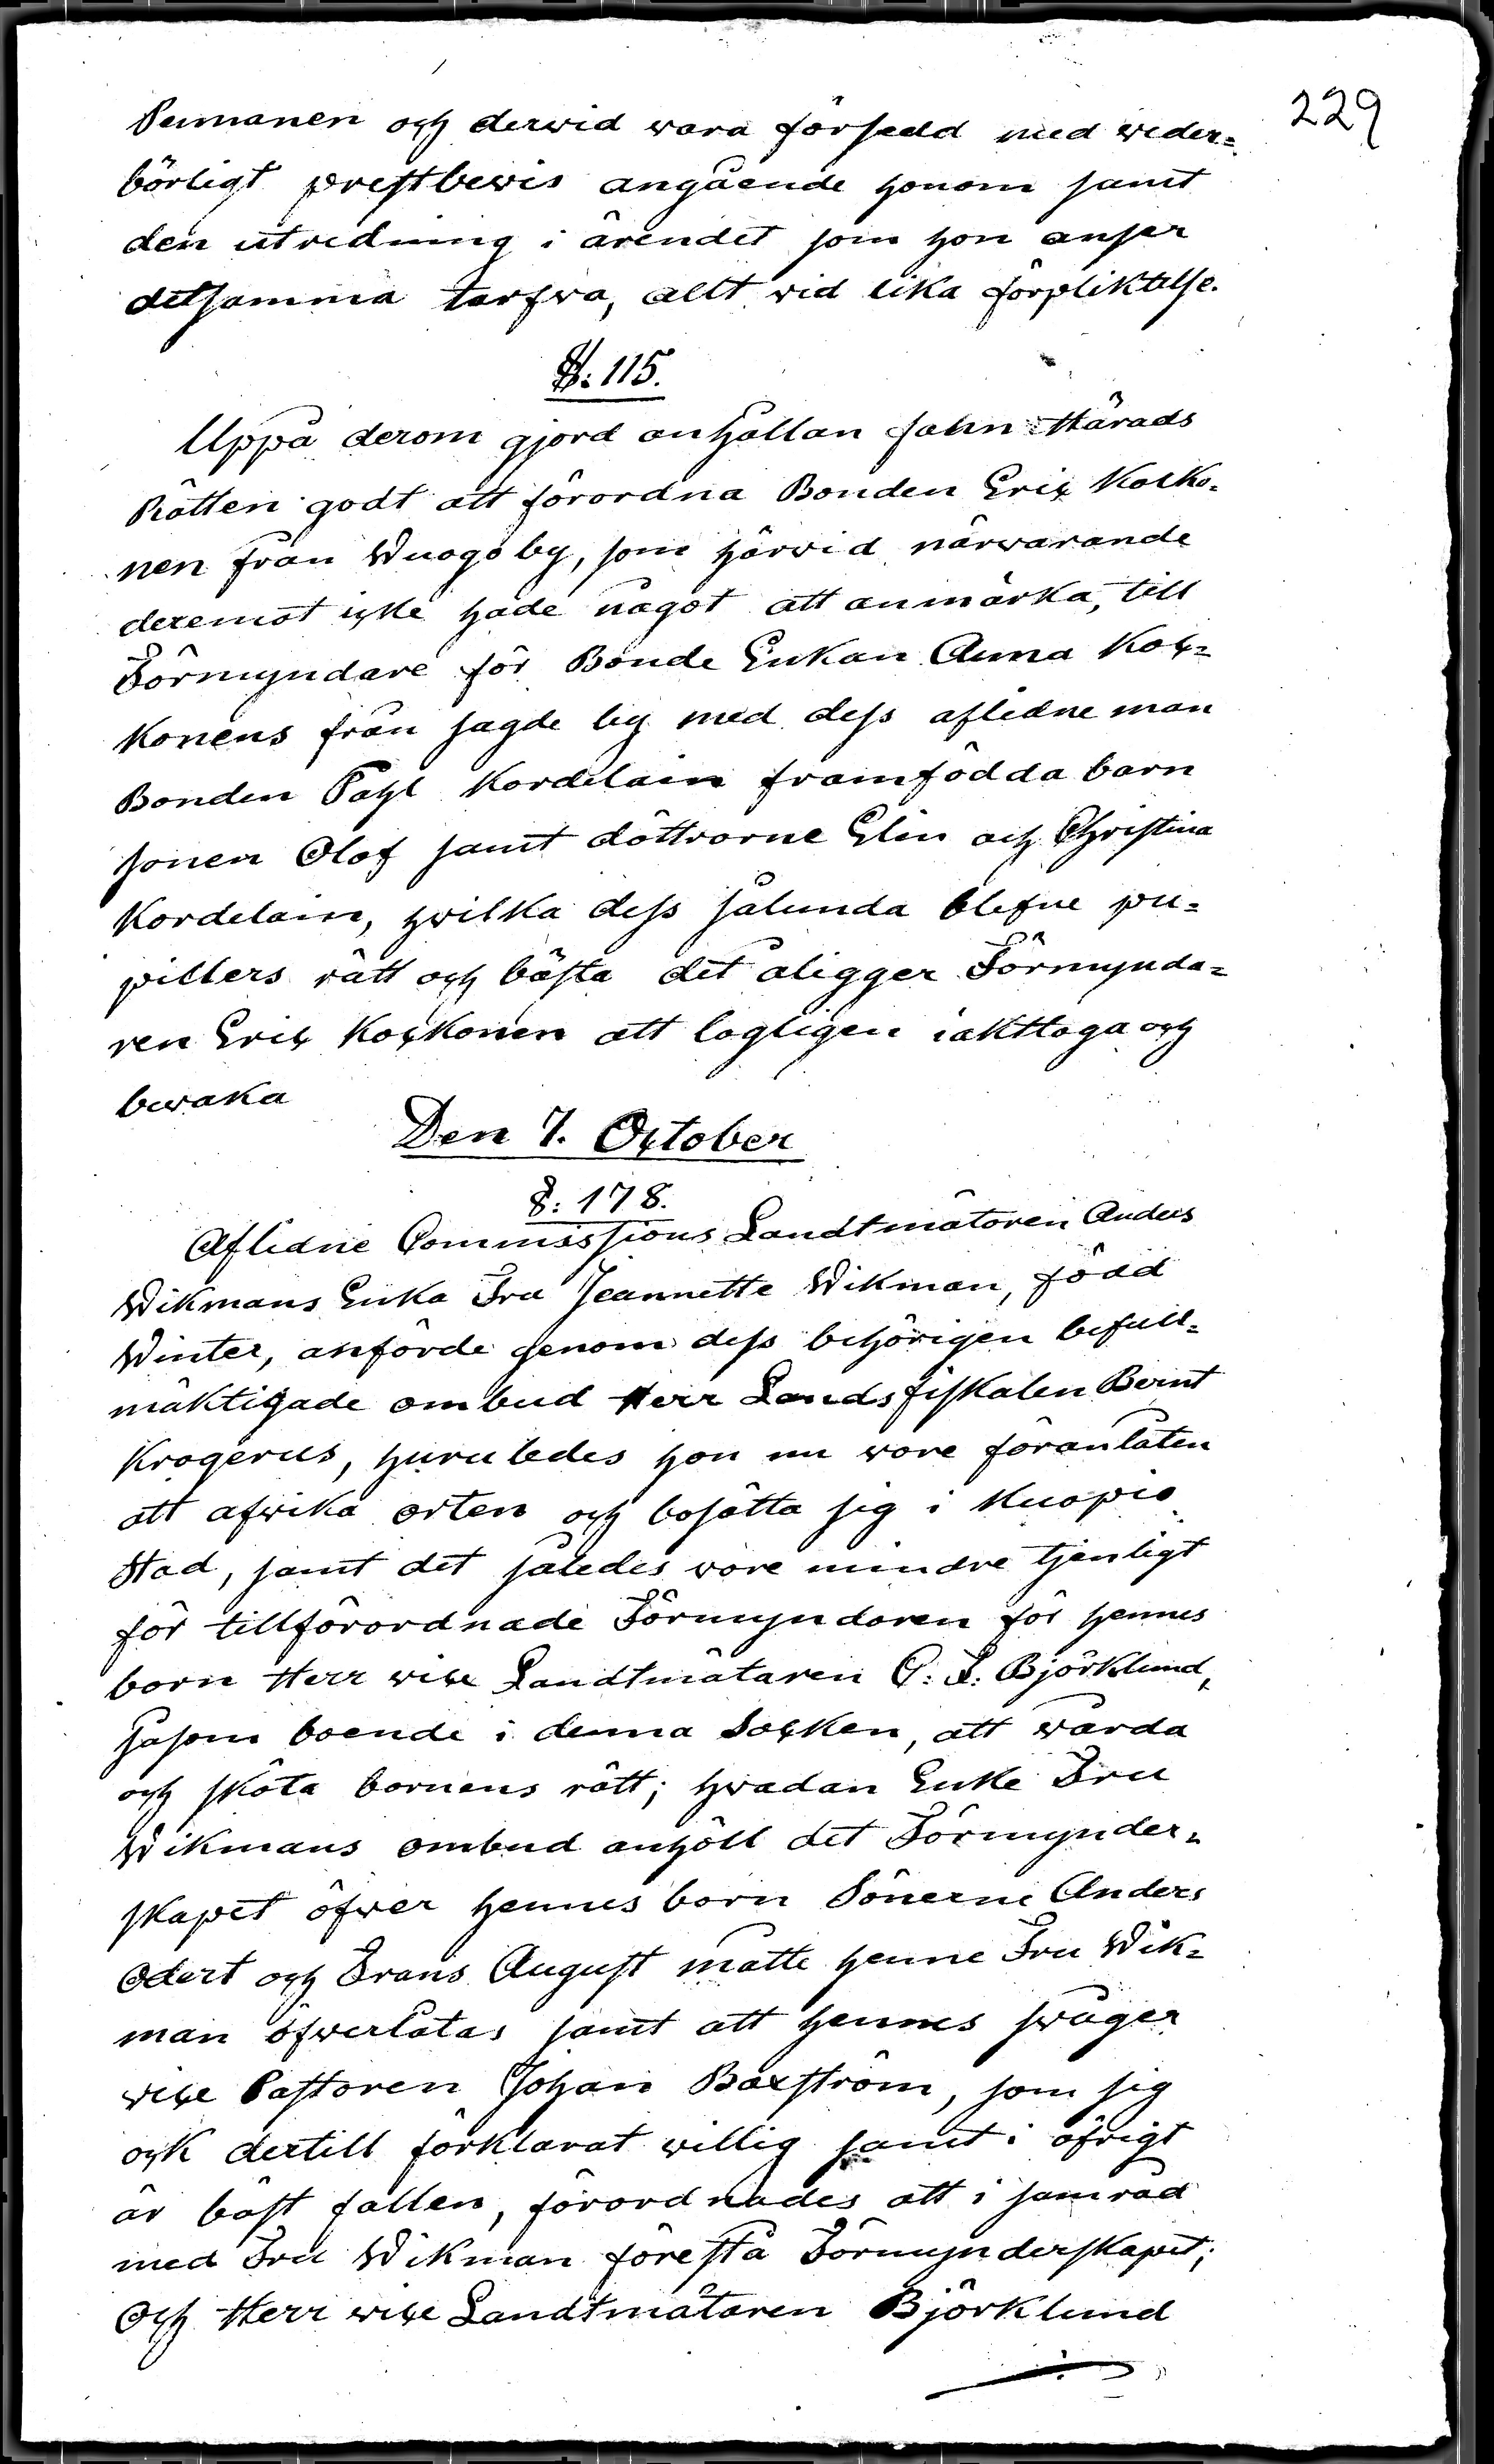 229
Peimanen och derwid wara försedd med weder-
börligt prestbewis angående honom samt
den utredning i ärendet som hon anser
detsamma tarfwa, allt wid lika förpliktelse.
§: 115.
Uppå derom gjord anhållan fann Härads
Rätten godt att förordna Bonden Eric Kocko-
nen från Wuogo by, som härwid närwarande
deremot icke hade något att anmärka, till
Förmyndare för Bonde Enkan Anna Koc-
konens från sagde by med dess aflidne man
Bonden Pahl Kordelain framfödda barn
sonen Olof samt döttrarne Elin och Christina
Kordelain, hwilka dess sålunda blefne pu-
pillers rätt och bästa det åligger Förmynda-
ren Eric Kockonen att lagligen iakttaga och
bewaka
Den 7. October
§: 178.
Aflidne Commissions Landtmätaren Anders
Wikmans Enka Fru Jeannette Wikman, född
Winter, anförde genom dess behörigen befull-
mäktigade ombud Herr Landsfiskalen Berut
Krogerus, huruledes hon nu wore föranlåten
att afwika orten och bosätta sig i Kuopio
Stad, samt det således wore mindre tjenligt
för tillförordnade Förmyndaren för hennes
barn Herr wice Landtmätaren C. J. Björklund,
såsom boende i denna Socken, att wårda
och sköta barnens rätt; hwadan Enke Fru
Wikmans ombud anhöll det Förmynder-
skapet öfwer hennes barn Sönerne Anders
Edert och Frans August måtte henne Fru Wik-
man öfwerlåtas samt att hennes swåger
wice Pastoren Johan Baxström, som sig
ock dertill förklarat willig samt i öfrigt
är bäst fallen, förordnades att i samråd
med Fru Wikman förestå Förmynderskapet;
Och Herr wice Landtmätaren Björklund